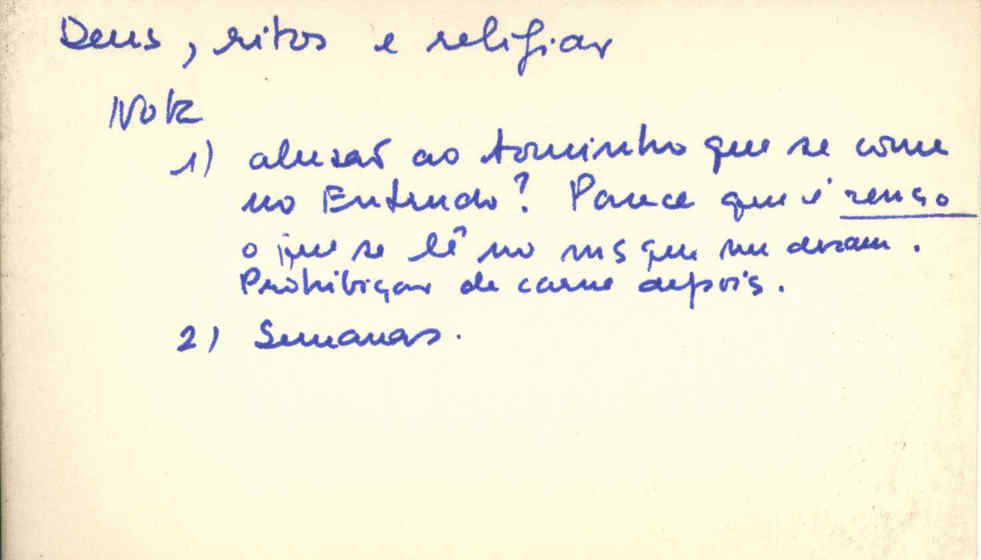 Deus, ritos e religião
Nota
1) alusão ao toucinho que se come
no Entrudo? Parece que é
o que se lê no ms que me deram.
Prohibição de carne depois.
2) Semanas.